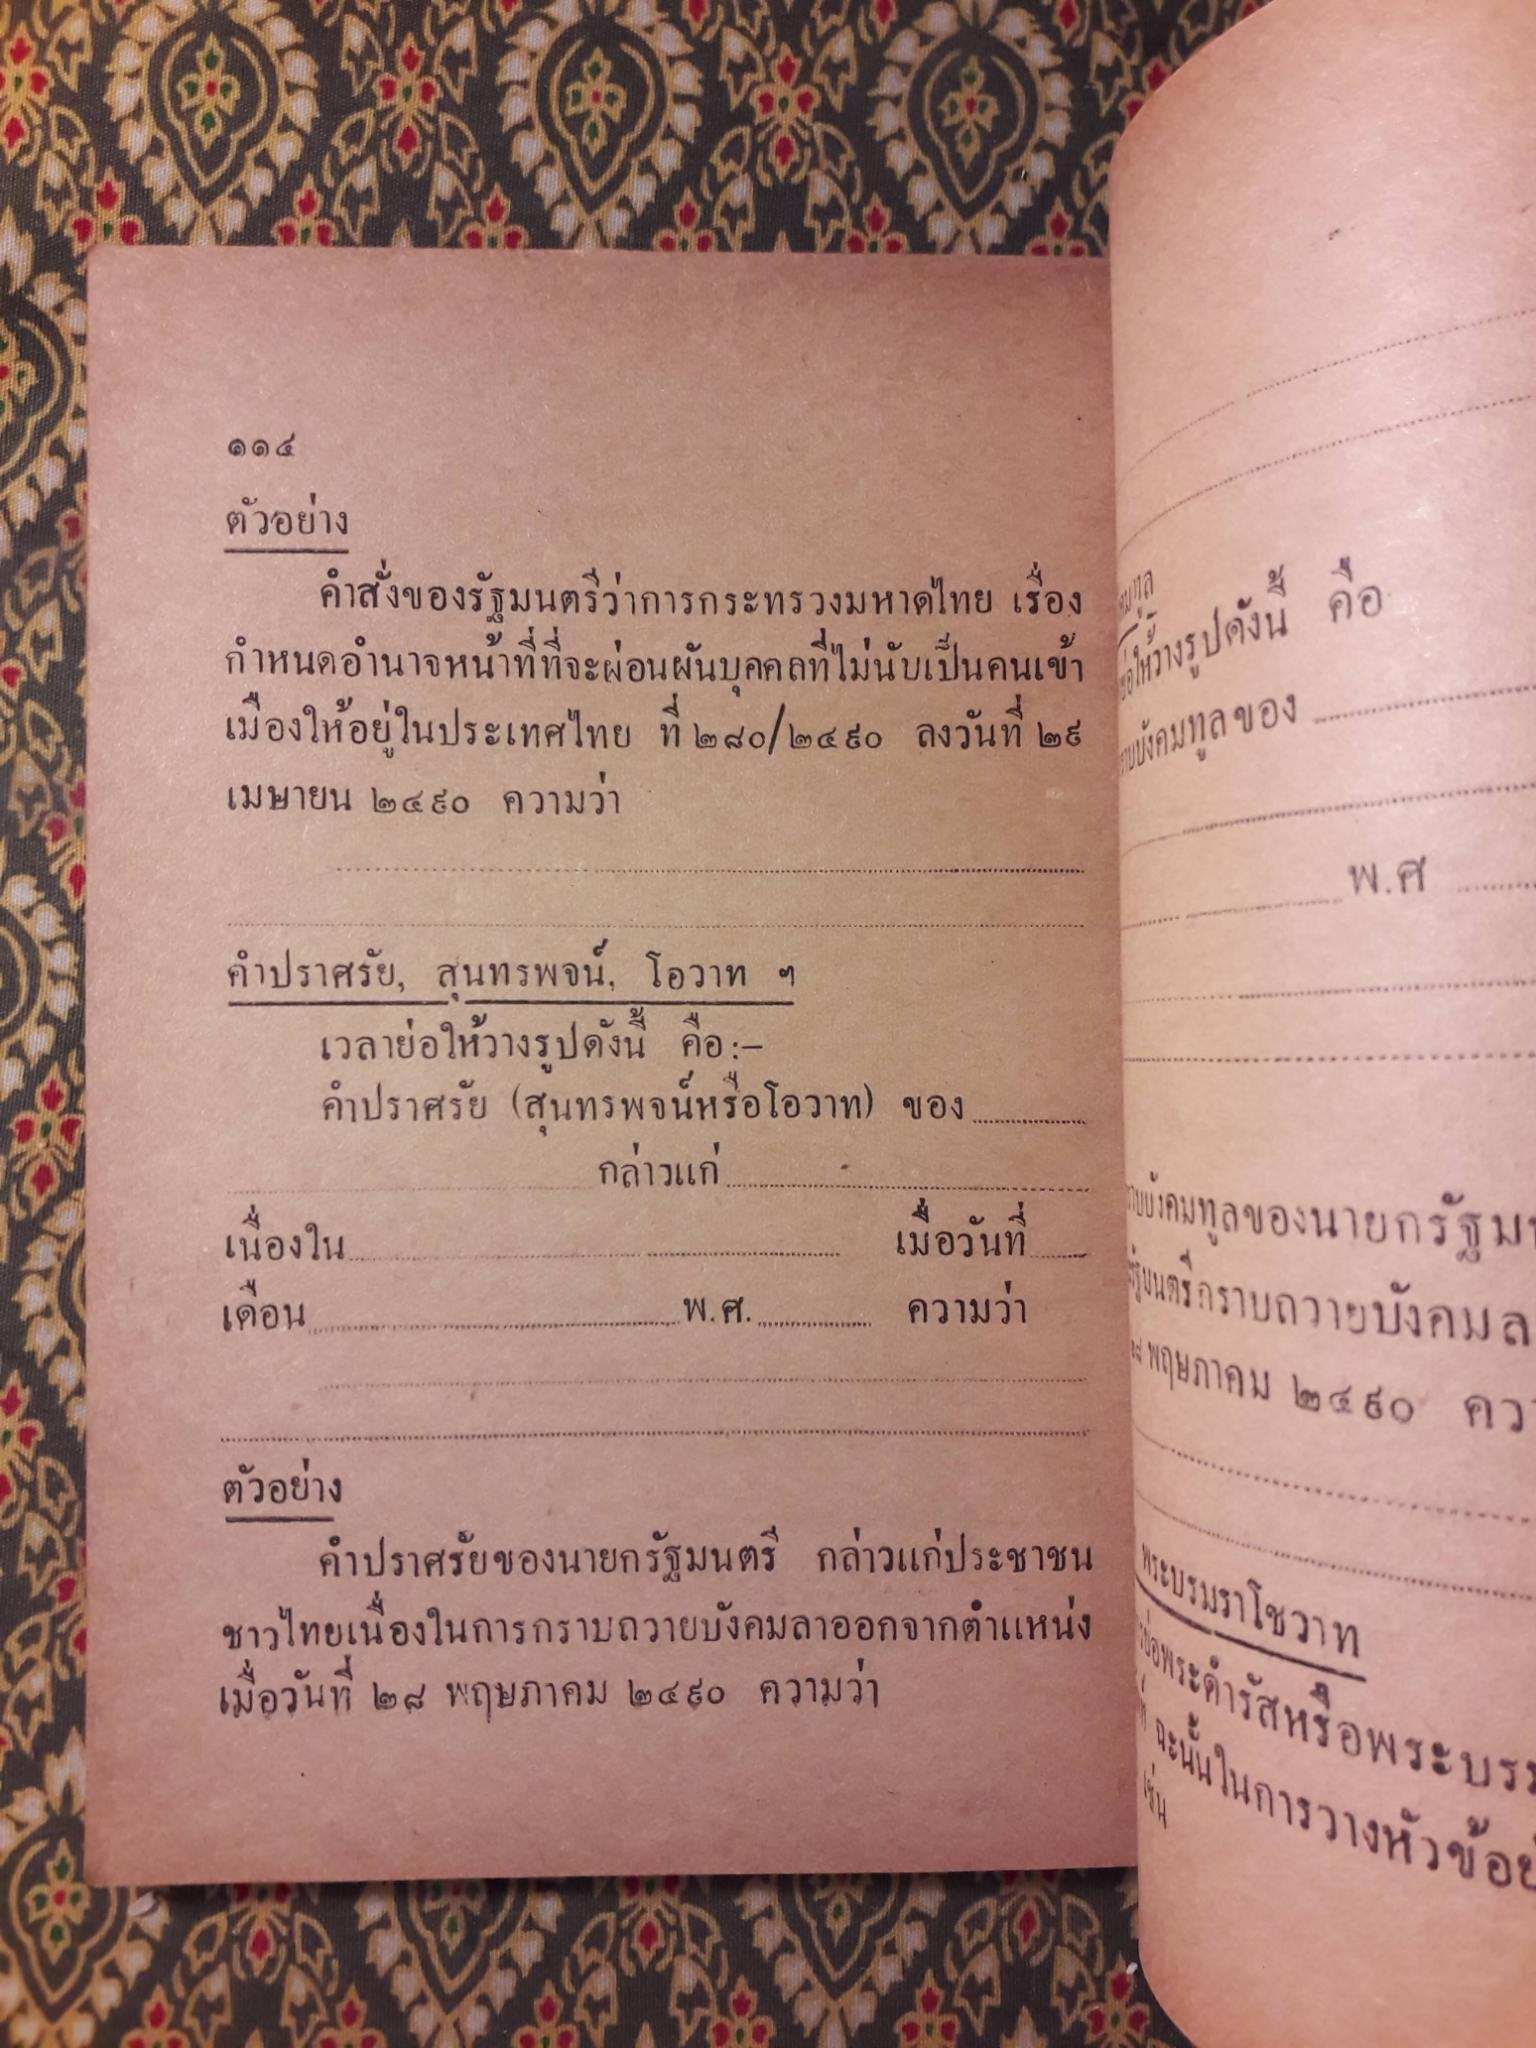 ๑๑๔
ตัวอย่าง
คำสั่งของรัฐมนตรีว่าการกระทรวงมหาดไทย เรื่อง
กำหนดอำนาจหน้าที่ที่จะผ่อนผันบุคคลที่ไม่นับเป็นคนเข้า
เมืองให้อยู่ในประเทศไทย ที่ ๒๘๐/๒๔๙๐ ลงวันที่ ๒๙
เมษายน ๒๔๙๐ ความว่า
คำปราศรัย, สุนทรพจน์, โอวาท ฯ
เวลาย่อให้วางรูปดังนี้ คือ:-
คำปราศรัย (สุนทรพจน์หรือโอวาท) ของ
กล่าวแก่
เนื่องใน เมื่อวันที่
เดือน พ.ศ. ความว่า
ตัวอย่าง
คำปราศรัยของนายกรัฐมนตรี กล่าวแก่ประชาชน
ชาวไทยเนื่องในการกราบถวายบังคมลาออกจากตำแหน่ง
เมื่อวันที่ ๒๘ พฤษภาคม ๒๔๙๐ ความว่า
ให้วางรูปดังนี้ คือ
บังคมทูลของ
พ.ศ
บังคมทูลของนายกรัฐม
กราบถวายบังคมล
๒๘ พฤษภาคม ๒๔๙๐ ควา
พระบรมราโชวาท
ย่อพระดำรัสหรือพระบรม
ฉะนั้นในการวางหัวข้อย่
เช่น